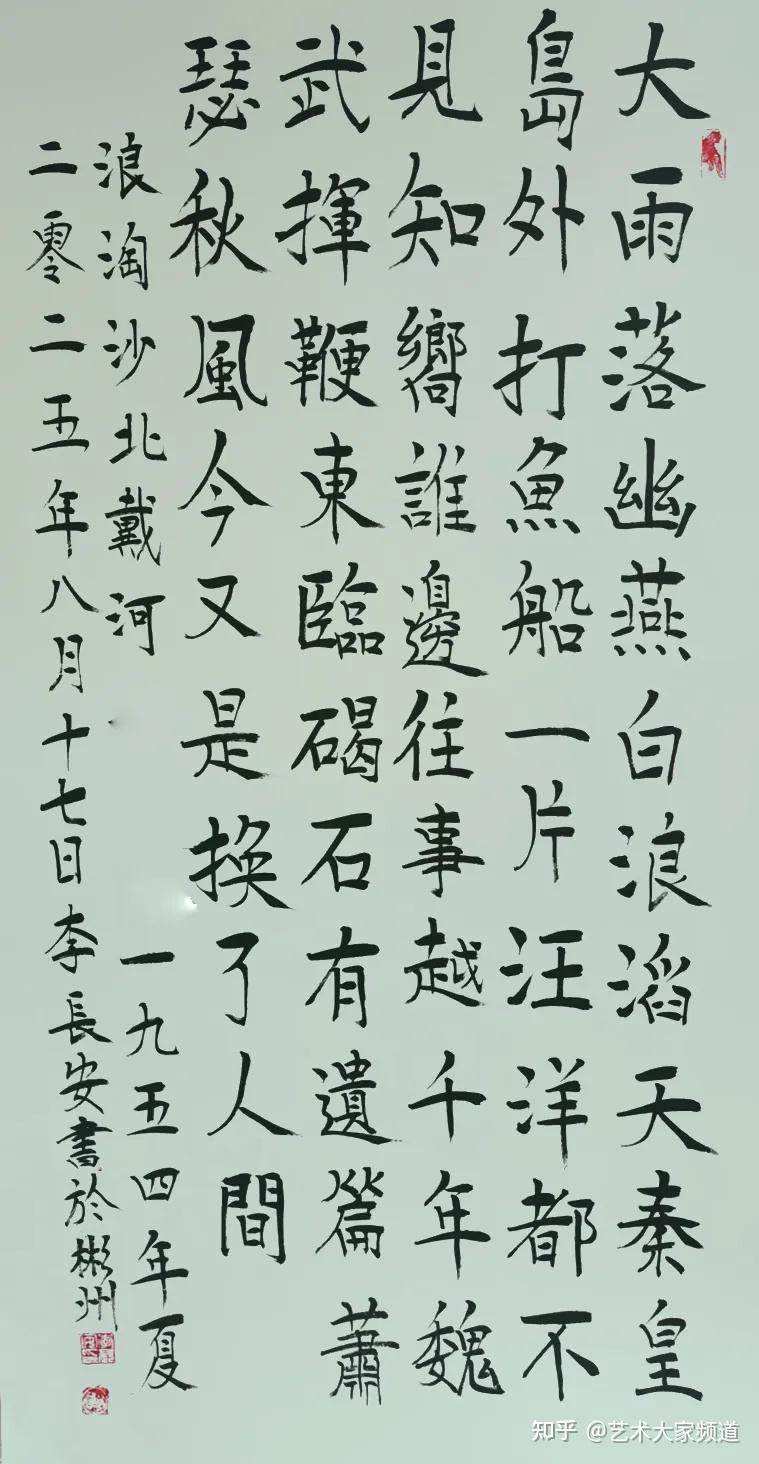 大雨落幽燕白浪滔天秦皇
島外打魚船一片汪洋都不
見知嚮誰邊往事越千年魏
武揮鞭東臨碣石有遺篇蕭
瑟秋風今又是換了人間
浪淘沙北戴河 一九五四年夏
二零二五年八月十七日李長安書於彬州
知乎 @艺术大家频道